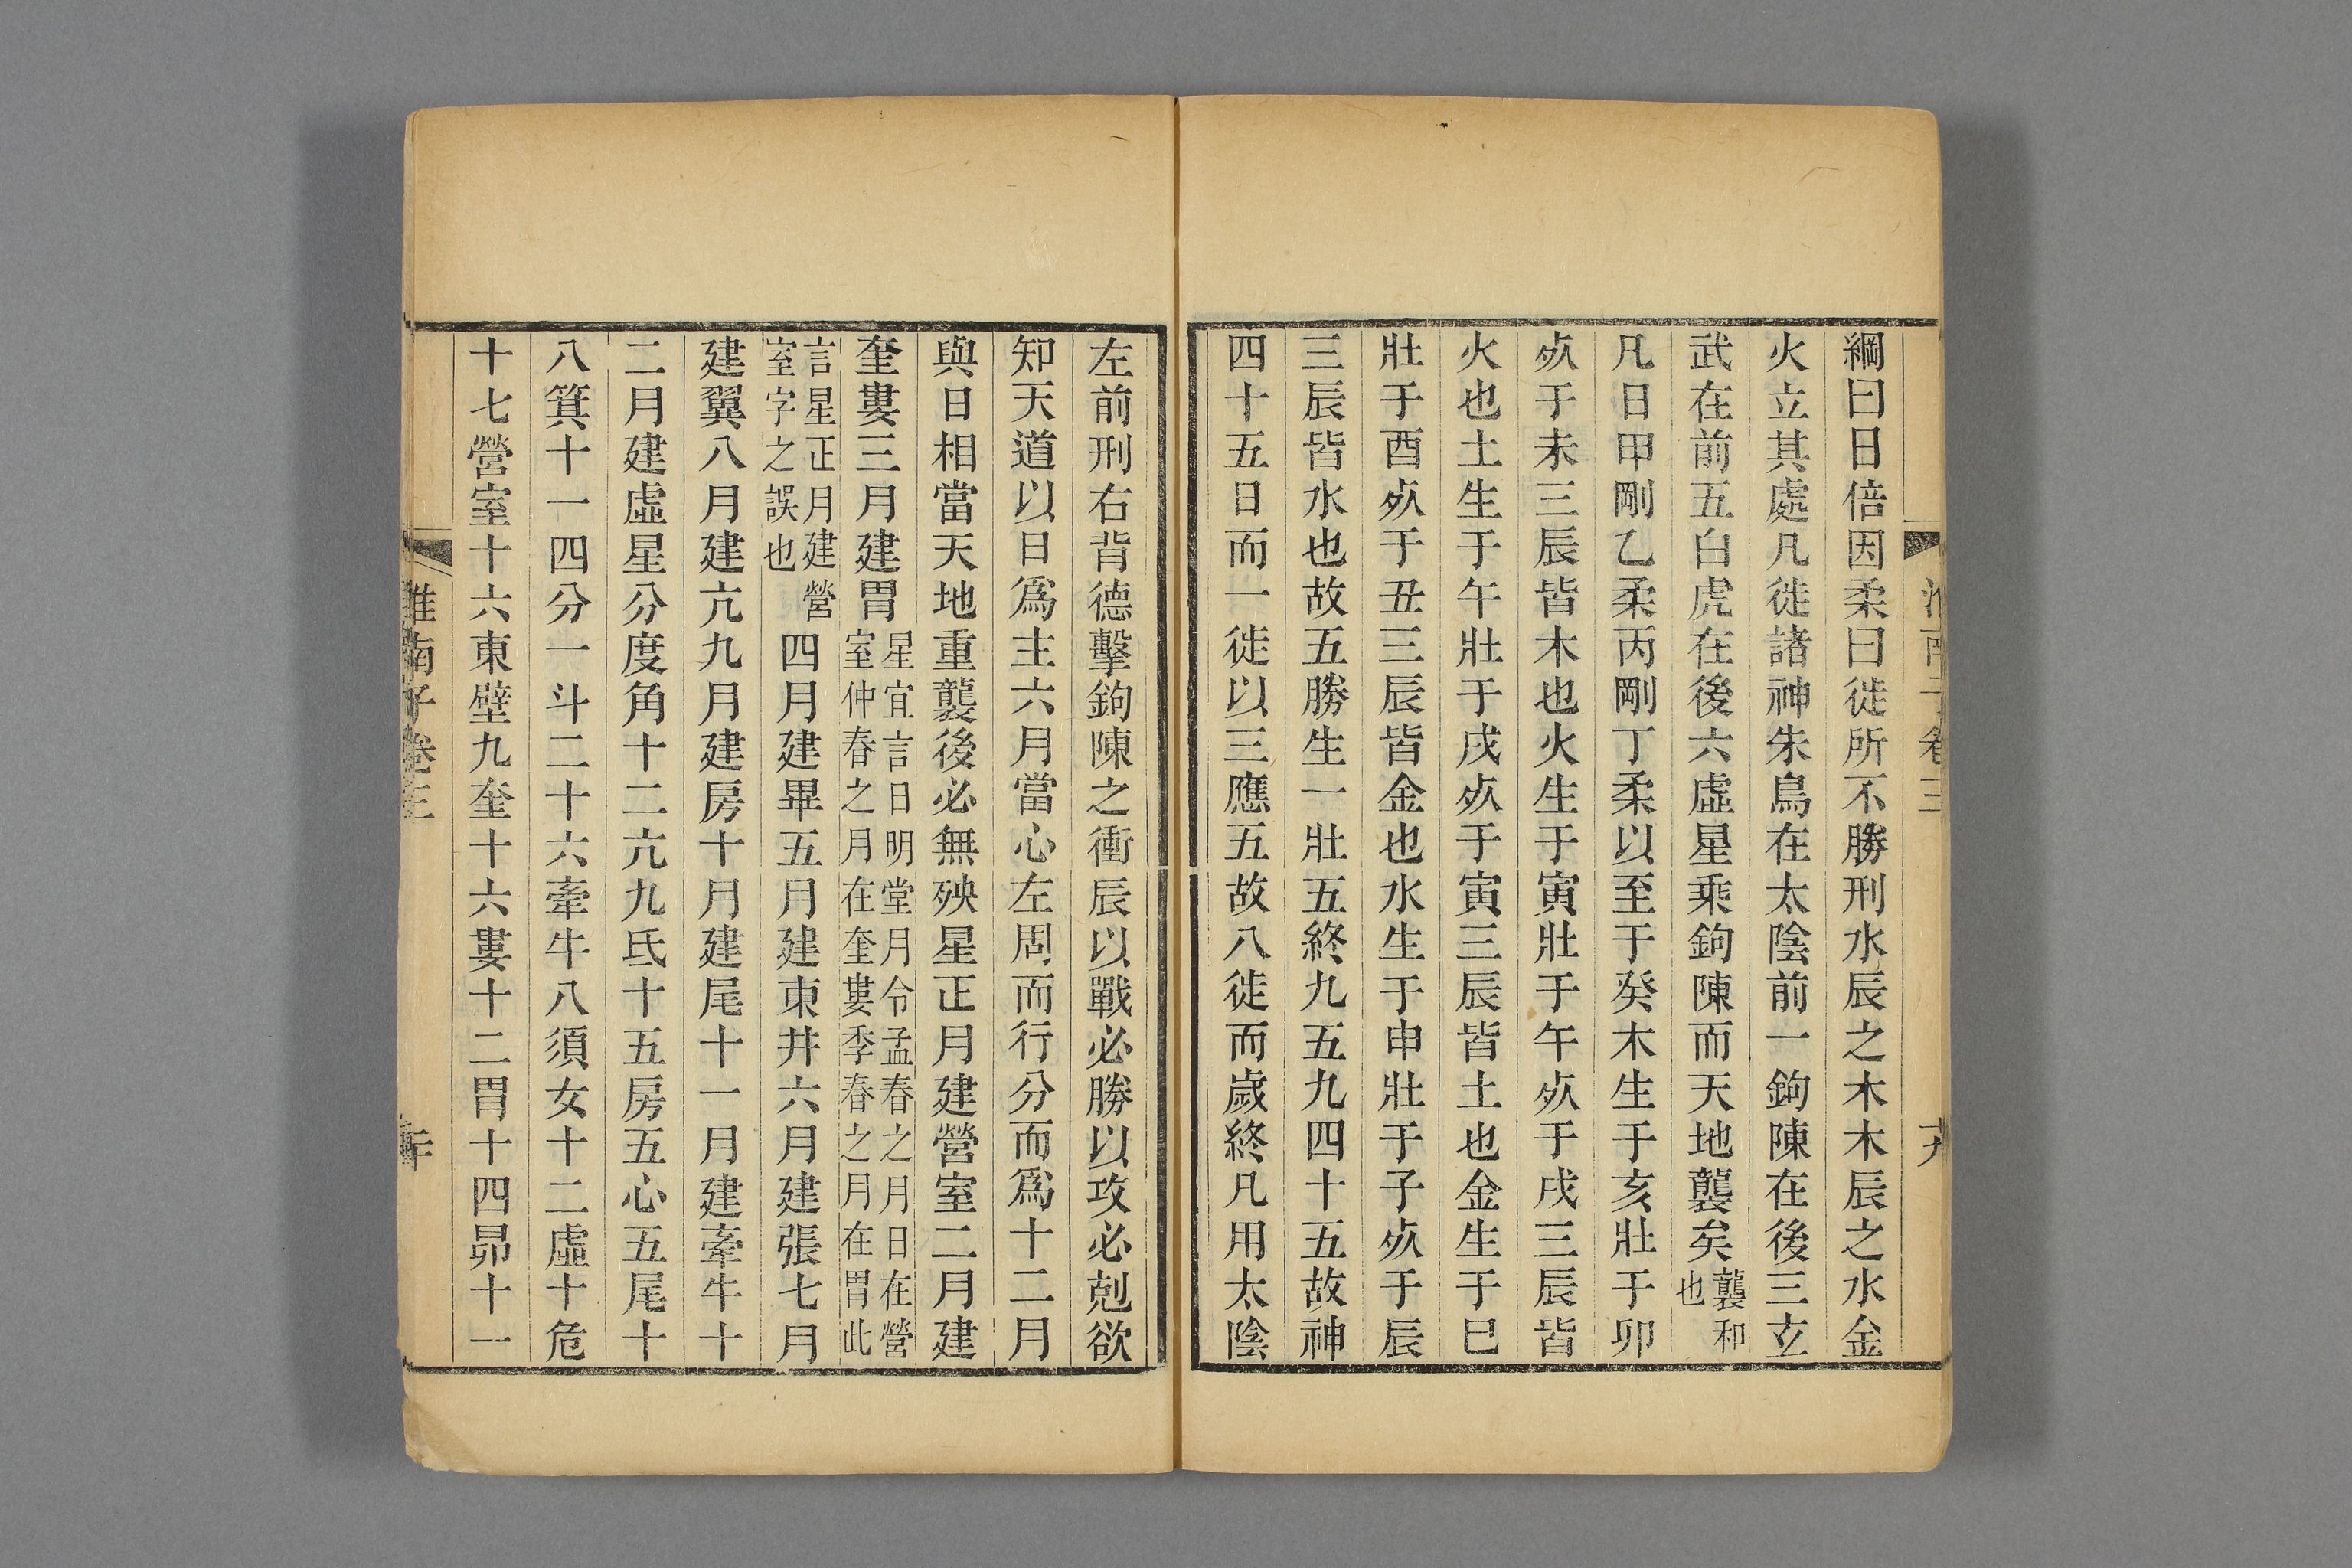 淮南子卷三 十九
綱曰日倍因柔曰徙所不勝刑水辰之木木辰之水金
火立其處凡徙諸神朱鳥在太陰前一鉤陳在後三玄
武在前五白虎在後六虛星乘鉤陳而天地襲矣襲和也
凡日甲剛乙柔丙剛丁柔以至于癸木生于亥壯于卯
死于未三辰皆木也火生于寅壯于午死于戌三辰皆
火也土生于午壯于戌死于寅三辰皆土也金生于巳
壯于酉死于丑三辰皆金也水生于申壯于子死于辰
三辰皆水也故五勝生一壯五終九五九四十五故神
四十五日而一徙以三應五故八徙而歲終凡用太陰
左前刑右背德擊鉤陳之衝辰以戰必勝以攻必剋欲
知天道以日爲主六月當心左周而行分而爲十二月
與日相當天地重襲後必無殃星正月建營室二月建
奎婁三月建胃星宜言日明堂月令孟春之月日在營室仲春之月在奎婁季春之月在胃此
言星正月建營室字之誤也四月建畢五月建東井六月建張七月
建翼八月建亢九月建房十月建尾十一月建牽牛十
二月建虛星分度角十二亢九氐十五房五心五尾十
八箕十一四分一斗二十六牽牛八須女十二虛十危
十七營室十六東壁九奎十六婁十二胃十四昴十一
淮南子卷三 二十